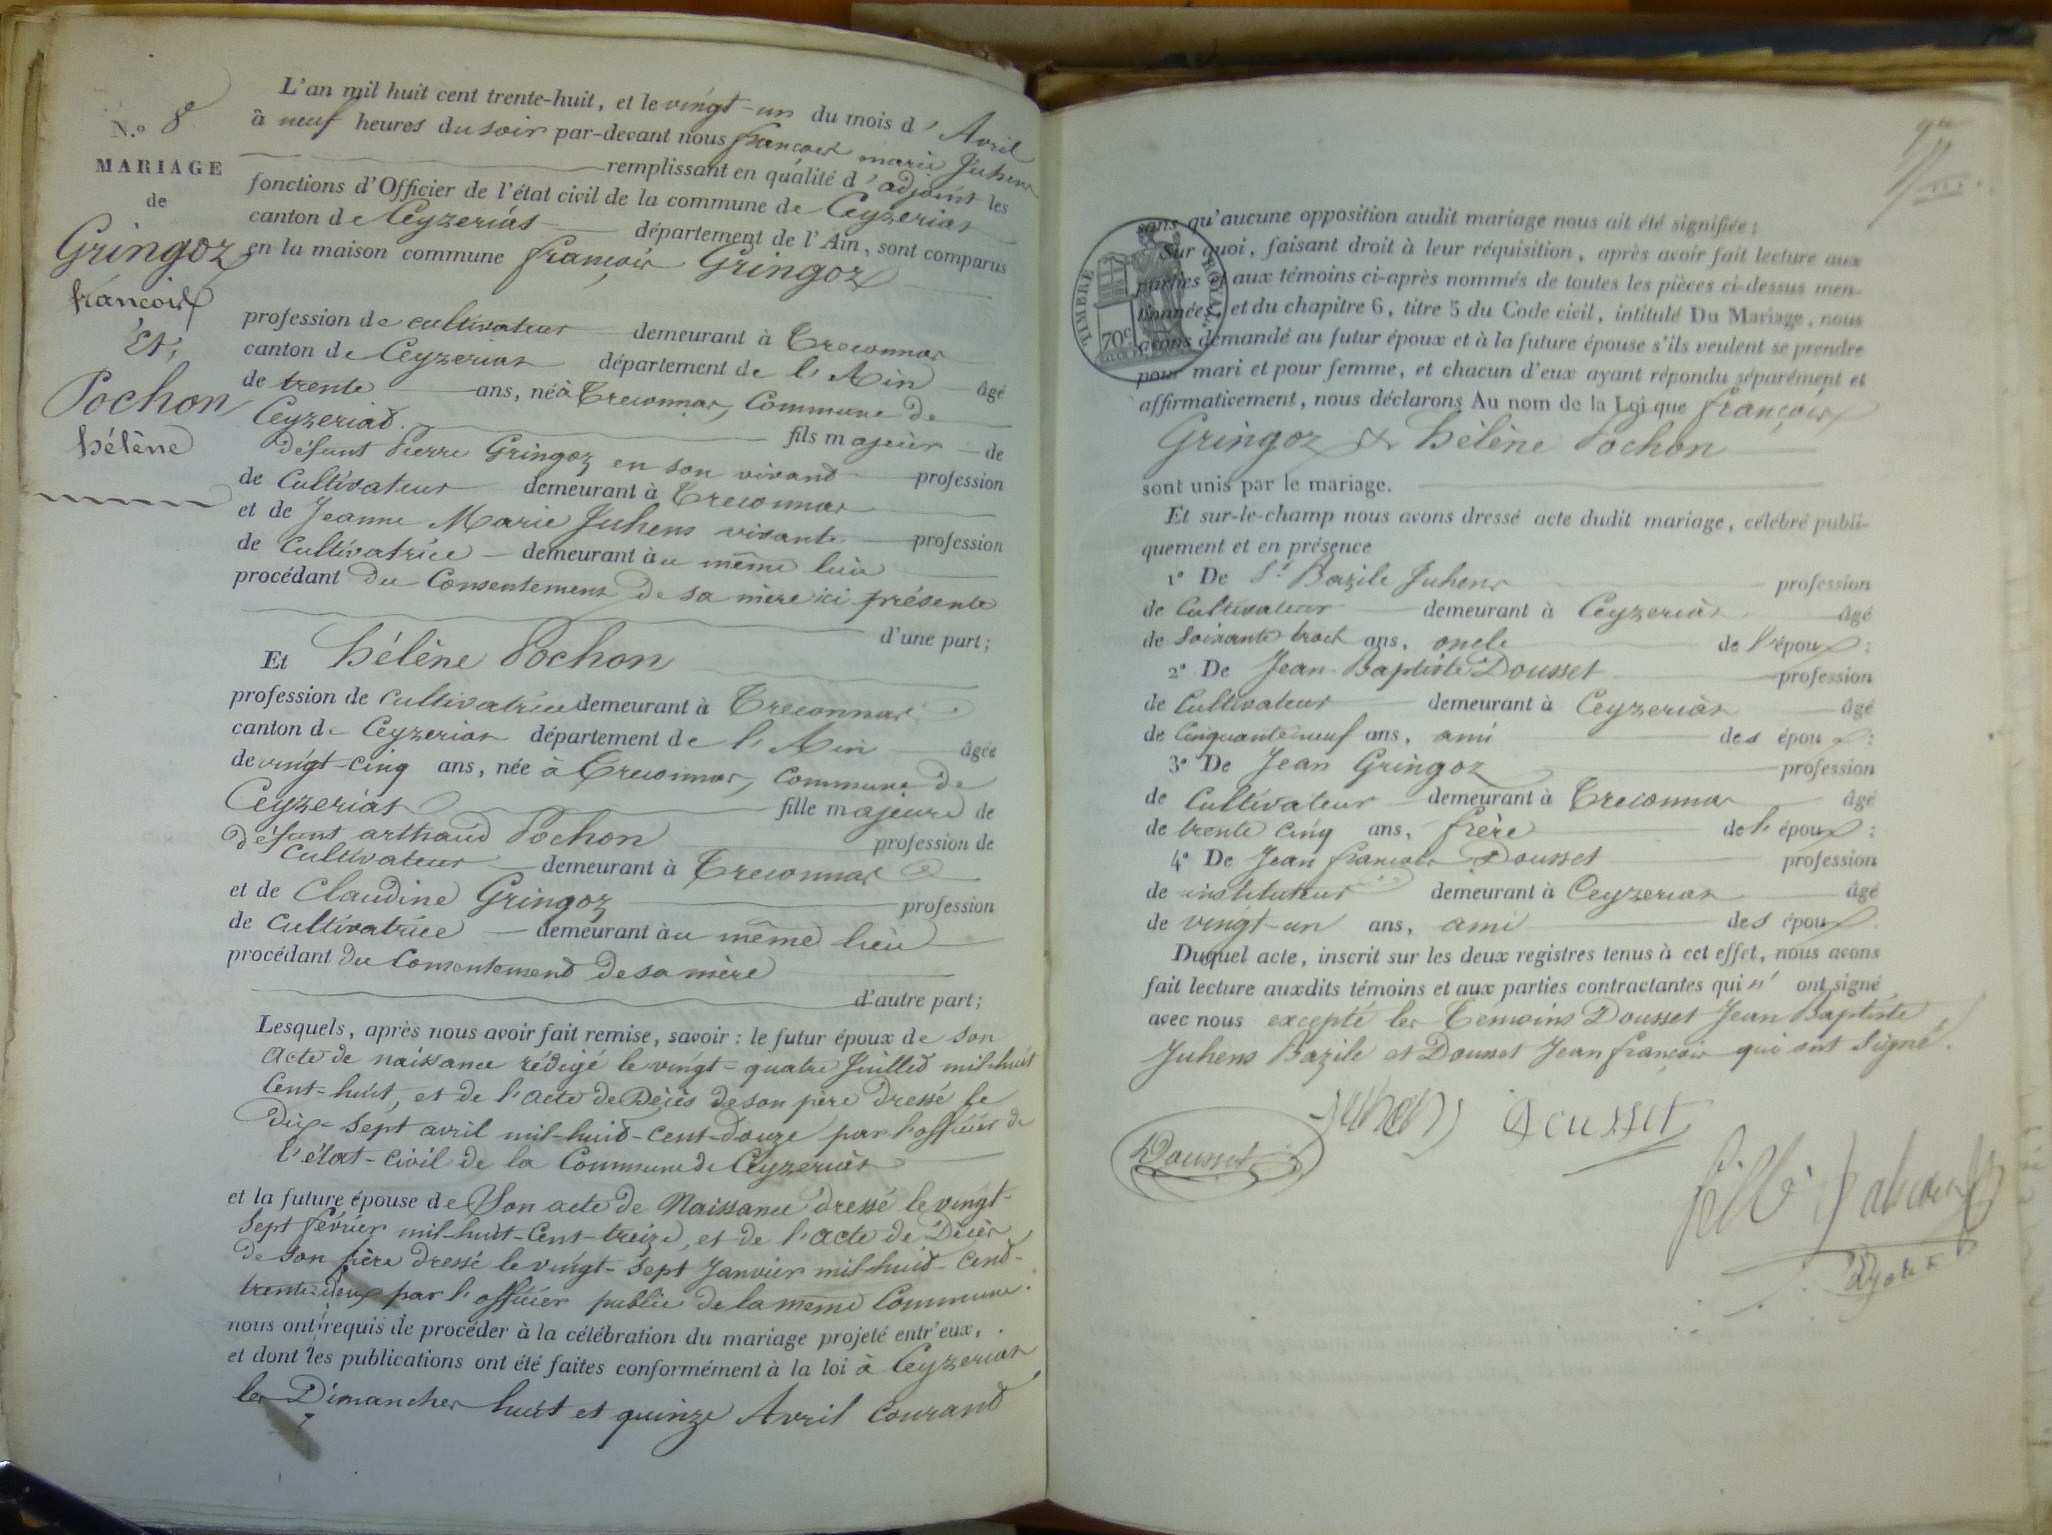 N.º 8
MARIAGE
de
Gringoz
françois
Et,
Pochon
hélène
L'an mil huit cent trente-huit, et le vingt-un du mois d'Avril
à neuf heures du soir par-devant nous françois marie Juhens
remplissant en qualité d'adjoint les
fonctions d'Officier de l'état civil de la commune de Ceyzerias
canton de Ceyzerias département de l'Ain, sont comparus
en la maison commune françois Gringoz
profession de cultivateur demeurant à Treconnas
canton de Ceyzerias département de l'Ain âgé
de trente ans, né à Treconnas, Commune de
Ceyzeriat. fils majeur de
défunt Pierre Gringoz en son vivant profession
de Cultivateur demeurant à Treconnas
et de Jeanne Marie Juhens vivante profession
de Cultivatrice demeurant au même lieu
procédant du Consentement de sa mère ici présente
d'une part;
Et hélène Pochon
profession de cultivatrice demeurant à Treconnas
canton de Ceyzerias département de l'Ain âgée
de vingt-cinq ans, née à Treconnas, Commune de
Ceyzerias fille majeure de
défunt arthaud Pochon profession de
Cultivateur demeurant à Treconnas
et de Claudine Gringoz profession
de Cultivatrice demeurant au même lieu
procédant du Consentement de sa mère
d'autre part;
Lesquels, après nous avoir fait remise, savoir: le futur époux de son
acte de naissance rédigé le vingt-quatre Juillet mil-huit
Cent-huit, et de l'acte de Décès de son père dressé le
Dix-sept avril mil-huit-cent-douze par l'officier de
l'état-civil de la Commune de Ceyzerias
et la future épouse de Son acte de Naissance dressé le vingt-
sept février mil-huit-Cent-treize, et de l'acte de Décès
de son père dressé le vingt-sept Janvier mil-huit-Cent-
trente-deux par l'officier public de la même Commune.
nous ont requis de procéder à la célébration du mariage projeté entr'eux,
et dont les publications ont été faites conformément à la loi à Ceyzerias
les Dimanches huit et quinze Avril Courant
TIMBRE ROYAL
70c
sans qu'aucune opposition audit mariage nous ait été signifiée;
Sur quoi, faisant droit à leur réquisition, après avoir fait lecture aux
parties et aux témoins ci-après nommés de toutes les pièces ci-dessus men-
tionnées, et du chapitre 6, titre 5 du Code civil, intitulé Du Mariage, nous
avons demandé au futur époux et à la future épouse s'ils veulent se prendre
pour mari et pour femme, et chacun d'eux ayant répondu séparément et
affirmativement, nous déclarons Au nom de la Loi que françois
Gringoz & hélène Pochon
sont unis par le mariage.
Et sur-le-champ nous avons dressé acte dudit mariage, célébré publi-
quement et en présence
1º De Sr Bazile Juhens profession
de Cultivateur demeurant à Ceyzerias âgé
de Soixante trois ans, oncle de l'époux;
2º De Jean-Baptiste Dousset profession
de Cultivateur demeurant à Ceyzerias âgé
de Cinquante neuf ans, ami des époux;
3º De Jean Gringoz profession
de Cultivateur demeurant à Treconnas âgé
de trente cinq ans, frère de l'époux;
4º De Jean françois Dousset profession
de instituteur demeurant à Ceyzerias âgé
de vingt-un ans, ami des époux.
Duquel acte, inscrit sur les deux registres tenus à cet effet, nous avons
fait lecture auxdits témoins et aux parties contractantes qui n'ont signé
avec nous excepté les Temoins Dousset Jean Baptiste
Juhens Bazile et Dousset Jean françois qui ont Signé.
Juhens Dousset
Dousset